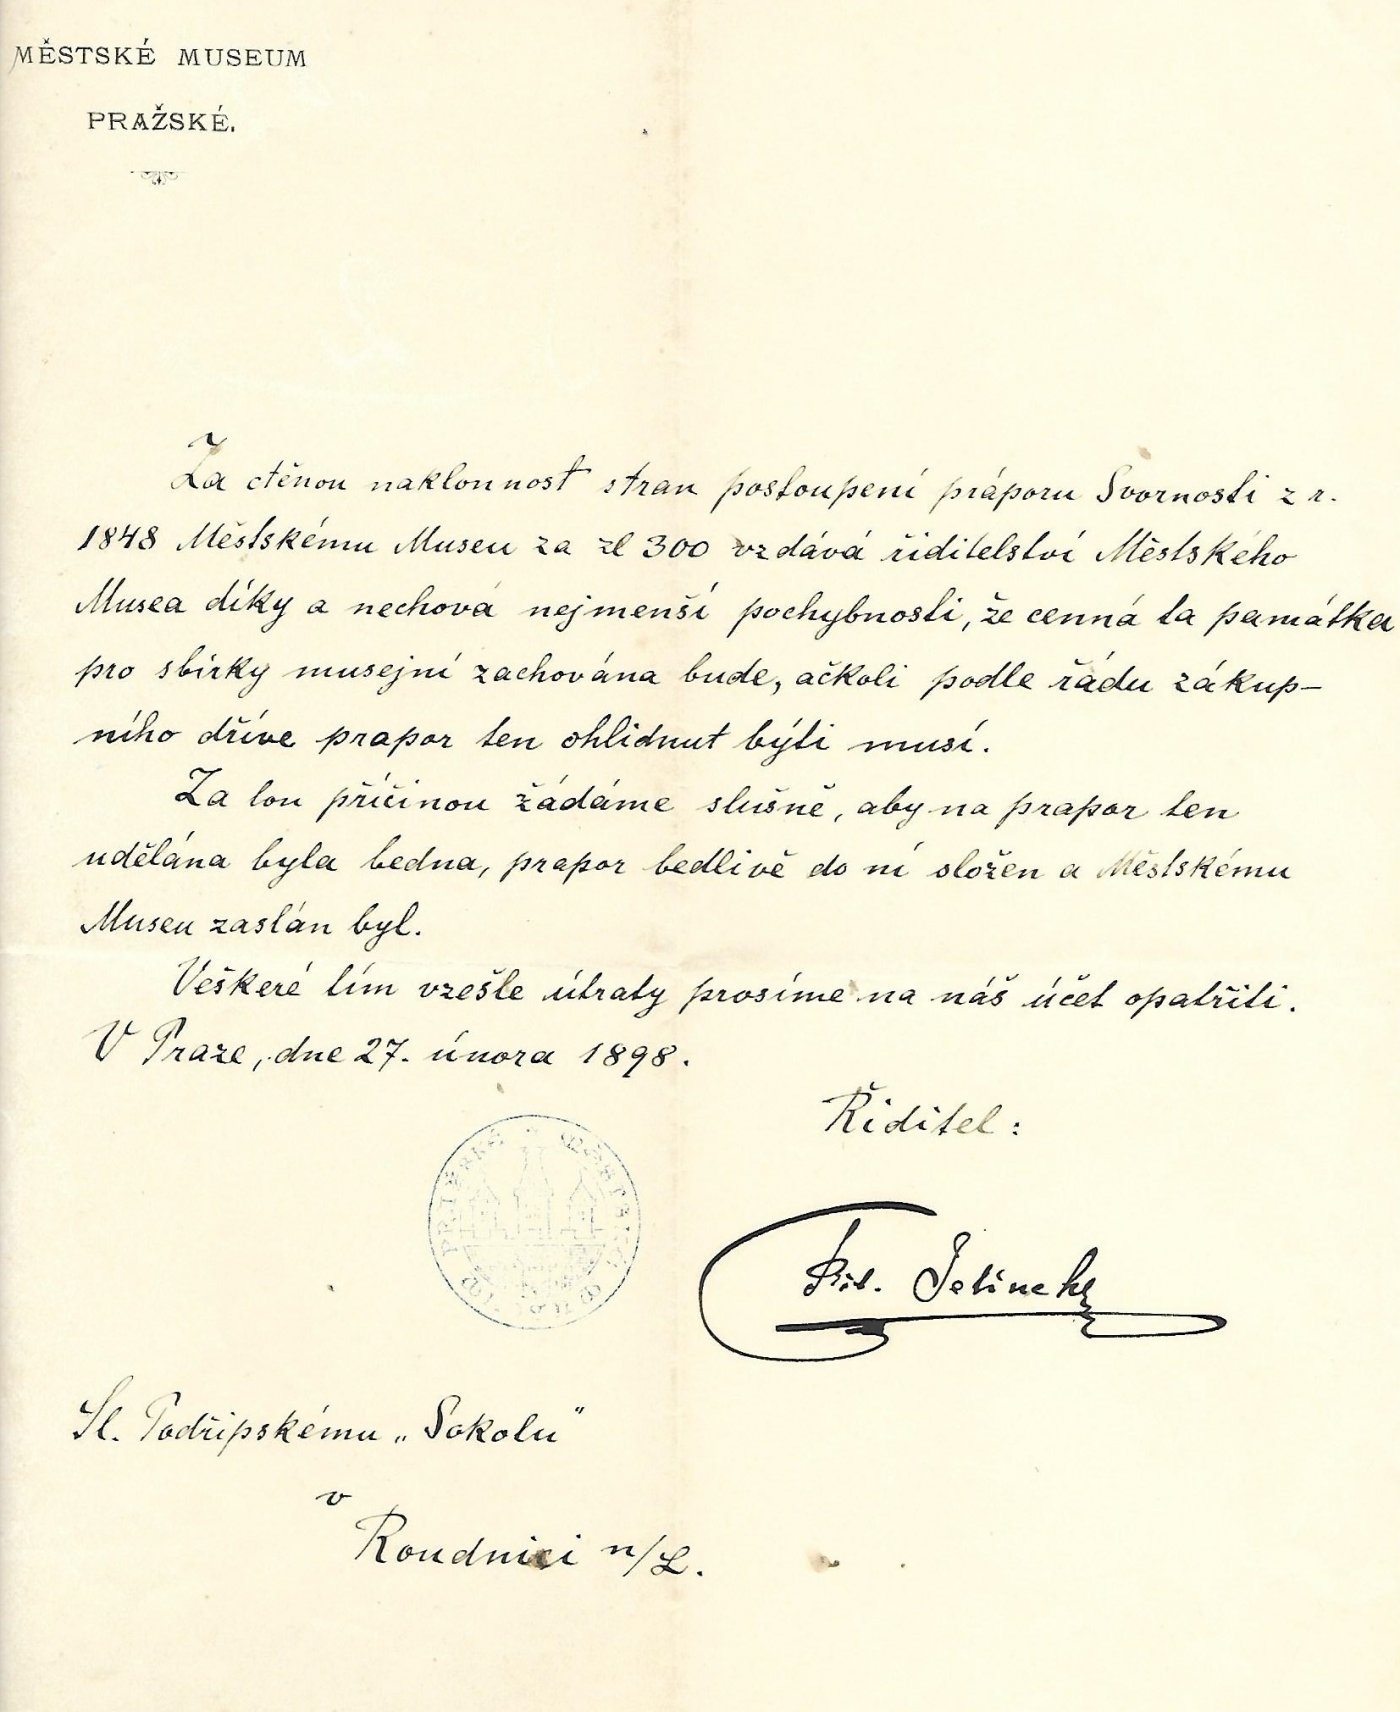 MĚSTSKÉ MUSEUM
PRAŽSKÉ.
Za ctěnou naklonnost stran postoupení práporu Svornosti z r.
1848 Městskému Museu za zl 300 vzdává řiditelství Městského
Musea díky a nechová nejmenší pochybnosti, že cenná ta památka
pro sbírky musejní zachována bude, ačkoli podle řádu zákup-
ního dříve prapor ten ohlídnut býti musí.
Za tou příčinou žádáme slušně, aby na prapor ten
udělána byla bedna, prapor bedlivě do ní složen a Městskému
Museu zaslán byl.
Veškeré tím vzešlé útraty prosíme na náš účet opatřiti.
V Praze, dne 27. února 1898.
Řiditel:
Břet. Jelínek
Sl. Podřipskému „Sokolu"
v
Roudnici n/L.